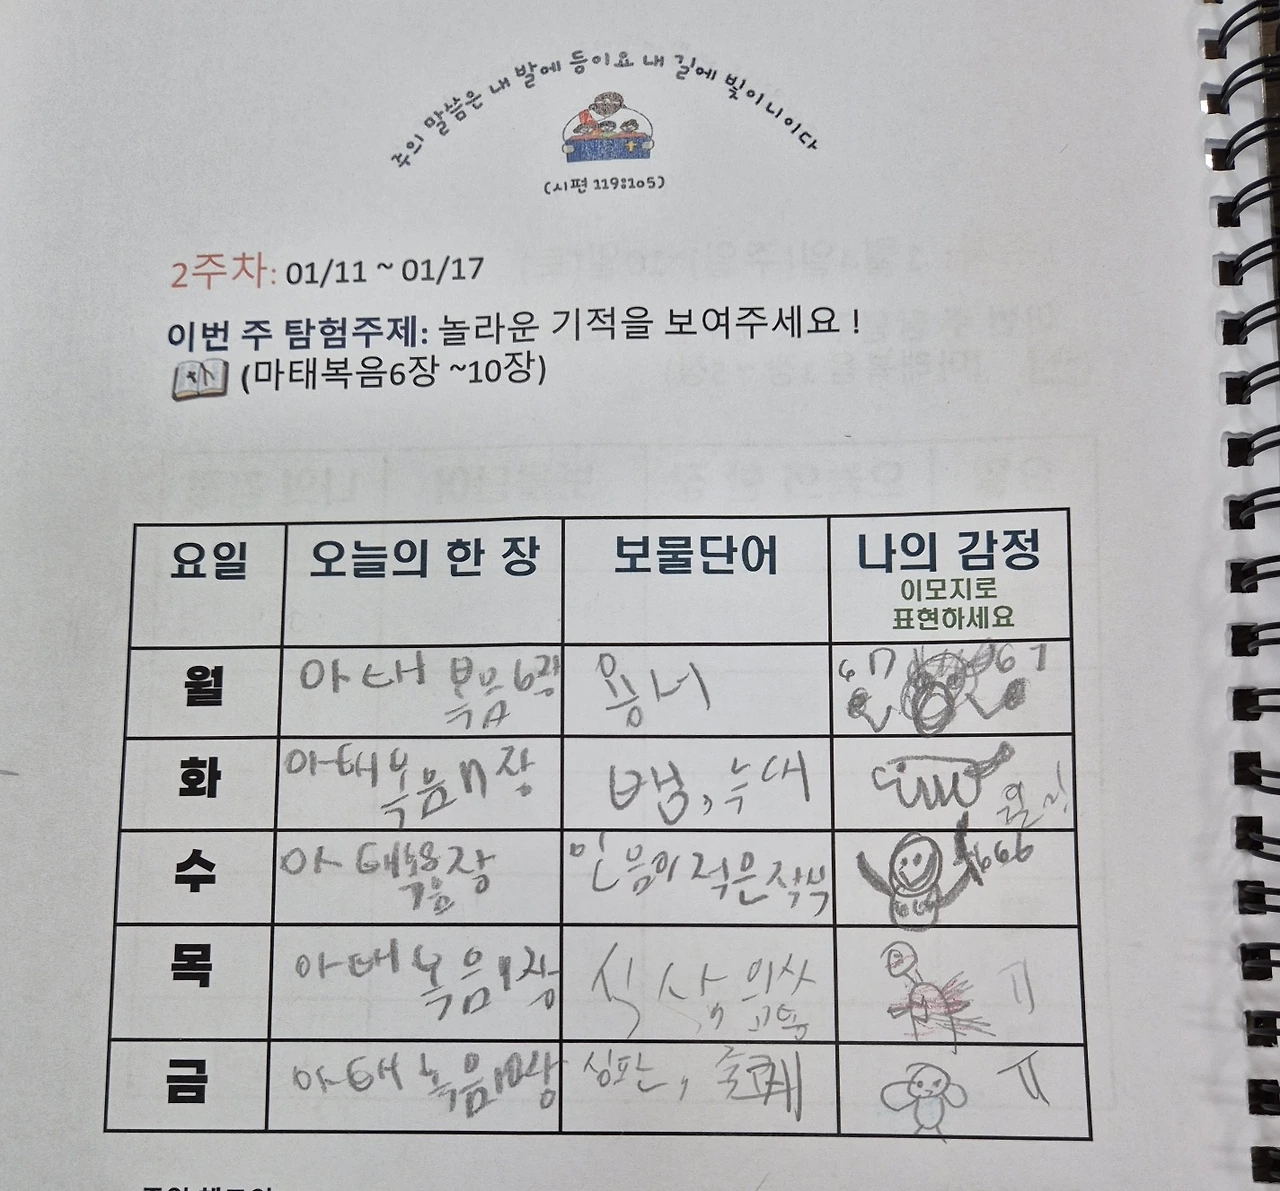 주의 말씀은 내 발에 등이요 내 길에 빛이니이다
(시편 119:105)
2주차: 01/11 ~ 01/17
이번 주 탐험주제: 놀라운 기적을 보여주세요 !
(마태복음6장 ~10장)
요일 오늘의 한 장 보물단어 나의 감정
이모지로
표현하세요
월 마태복음6장 용서 67 67
화 마태복음7장 뱀, 늑대
수 마태복음8장 믿음이 적은 666
목 마태복음9장 식사, 의사
고통
금 마태복음10장 심판,